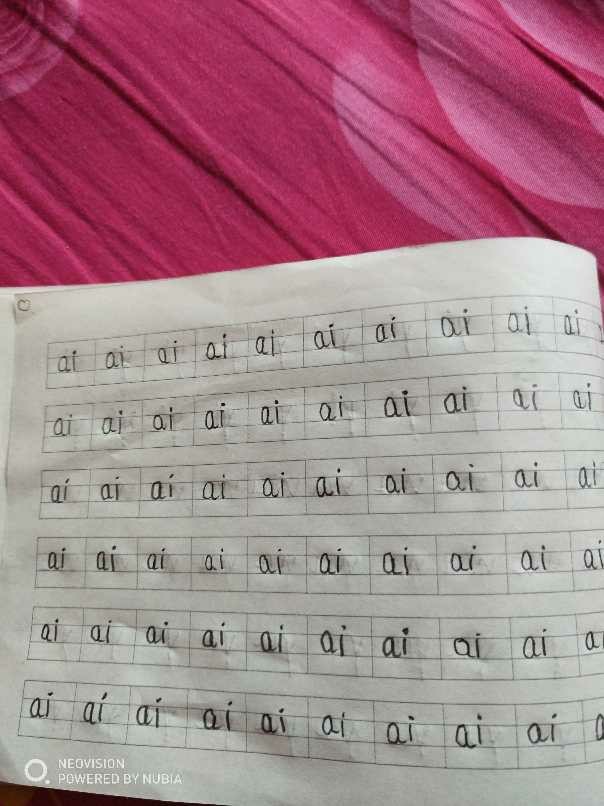 ai ai ai ai ai ai ai ai ai ai
ai ai ai ai ai ai ai ai ai ai
ai ai ai ai ai ai ai ai ai ai
ai ai ai ai ai ai ai ai ai ai
ai ai ai ai ai ai ai ai ai a
ai ai ai ai ai ai ai ai ai a
NEOVISION
POWERED BY NUBIA